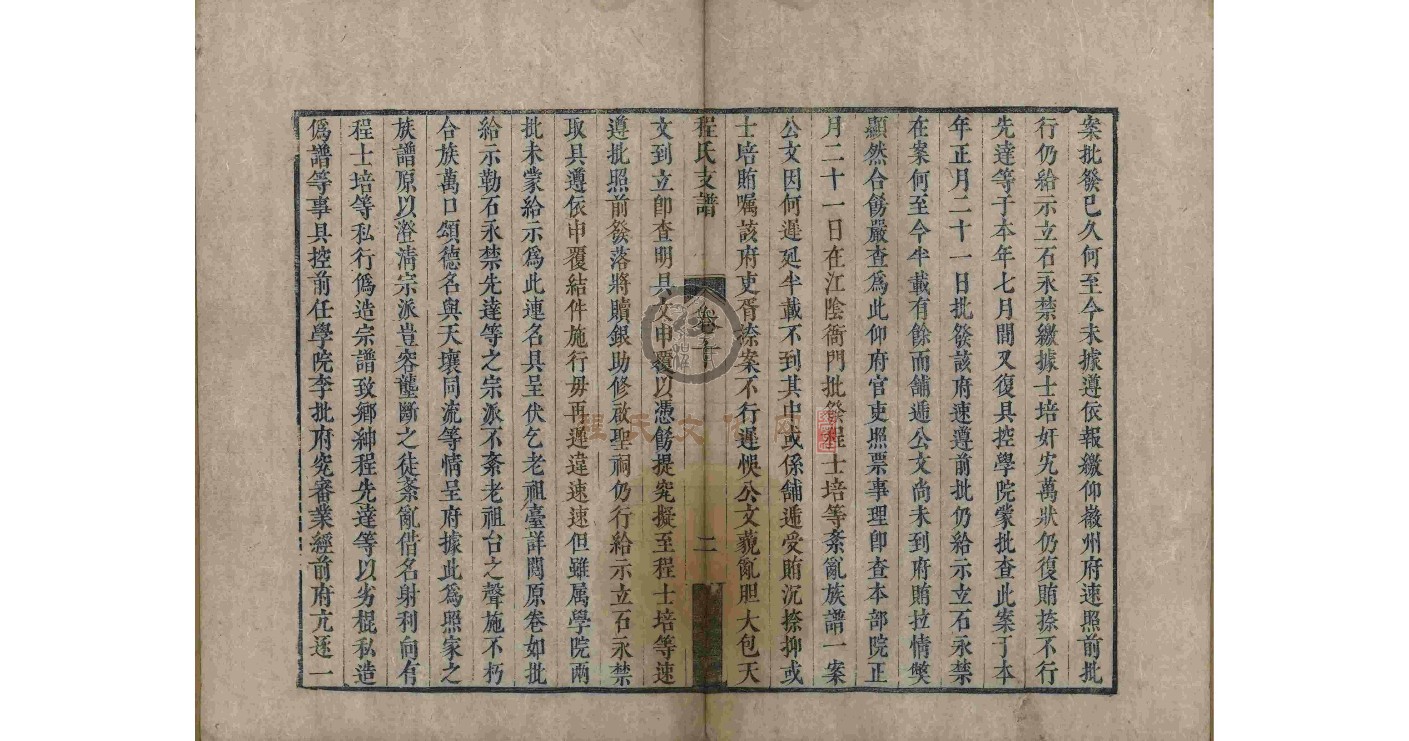 案批發已久何至今未據遵依報繳仰徽州府速照前批
行仍給示立石永禁繳據士培奸宄萬狀仍復賄捺不行
先達等于本年七月間又復具控學院蒙批查此案于本
年正月二十一日批發該府速遵前批仍給示立石永禁
在案何至今半載有餘而舖遞公文尚未到府賄拉情獘
顯然合飭嚴查為此仰府官吏照票事理即查本部院正
月二十一日在江陰衙門批發程士培等紊亂族譜一案
公文因何遲延半載不到其中或係舖遞受賄沉捺抑或
士培賄囑該府吏胥捺案不行遲悞公文藐亂胆大包天
程氏支譜
卷
二
文到立即查明具文申覆以憑飭提究擬至程士培等速
遵批照前發落將贖銀助修啟聖祠仍行給示立石永禁
取具遵依申覆結件施行毋再遲違速速但雖属學院兩
批未蒙給示為此連名具呈伏乞老祖臺詳閱原卷如批
給示勒石永禁先達等之宗派不紊老祖台之聲施不朽
合族萬口頌德名與天壤同流等情呈府據此為照家之
族譜原以澄清宗派豈容壟斷之徒紊亂借名射利向有
程士培等私行偽造宗譜致鄉紳程先達等以劣棍私造
偽譜等事具控前任學院李批府究審業經前府亢逐一
程氏文化网